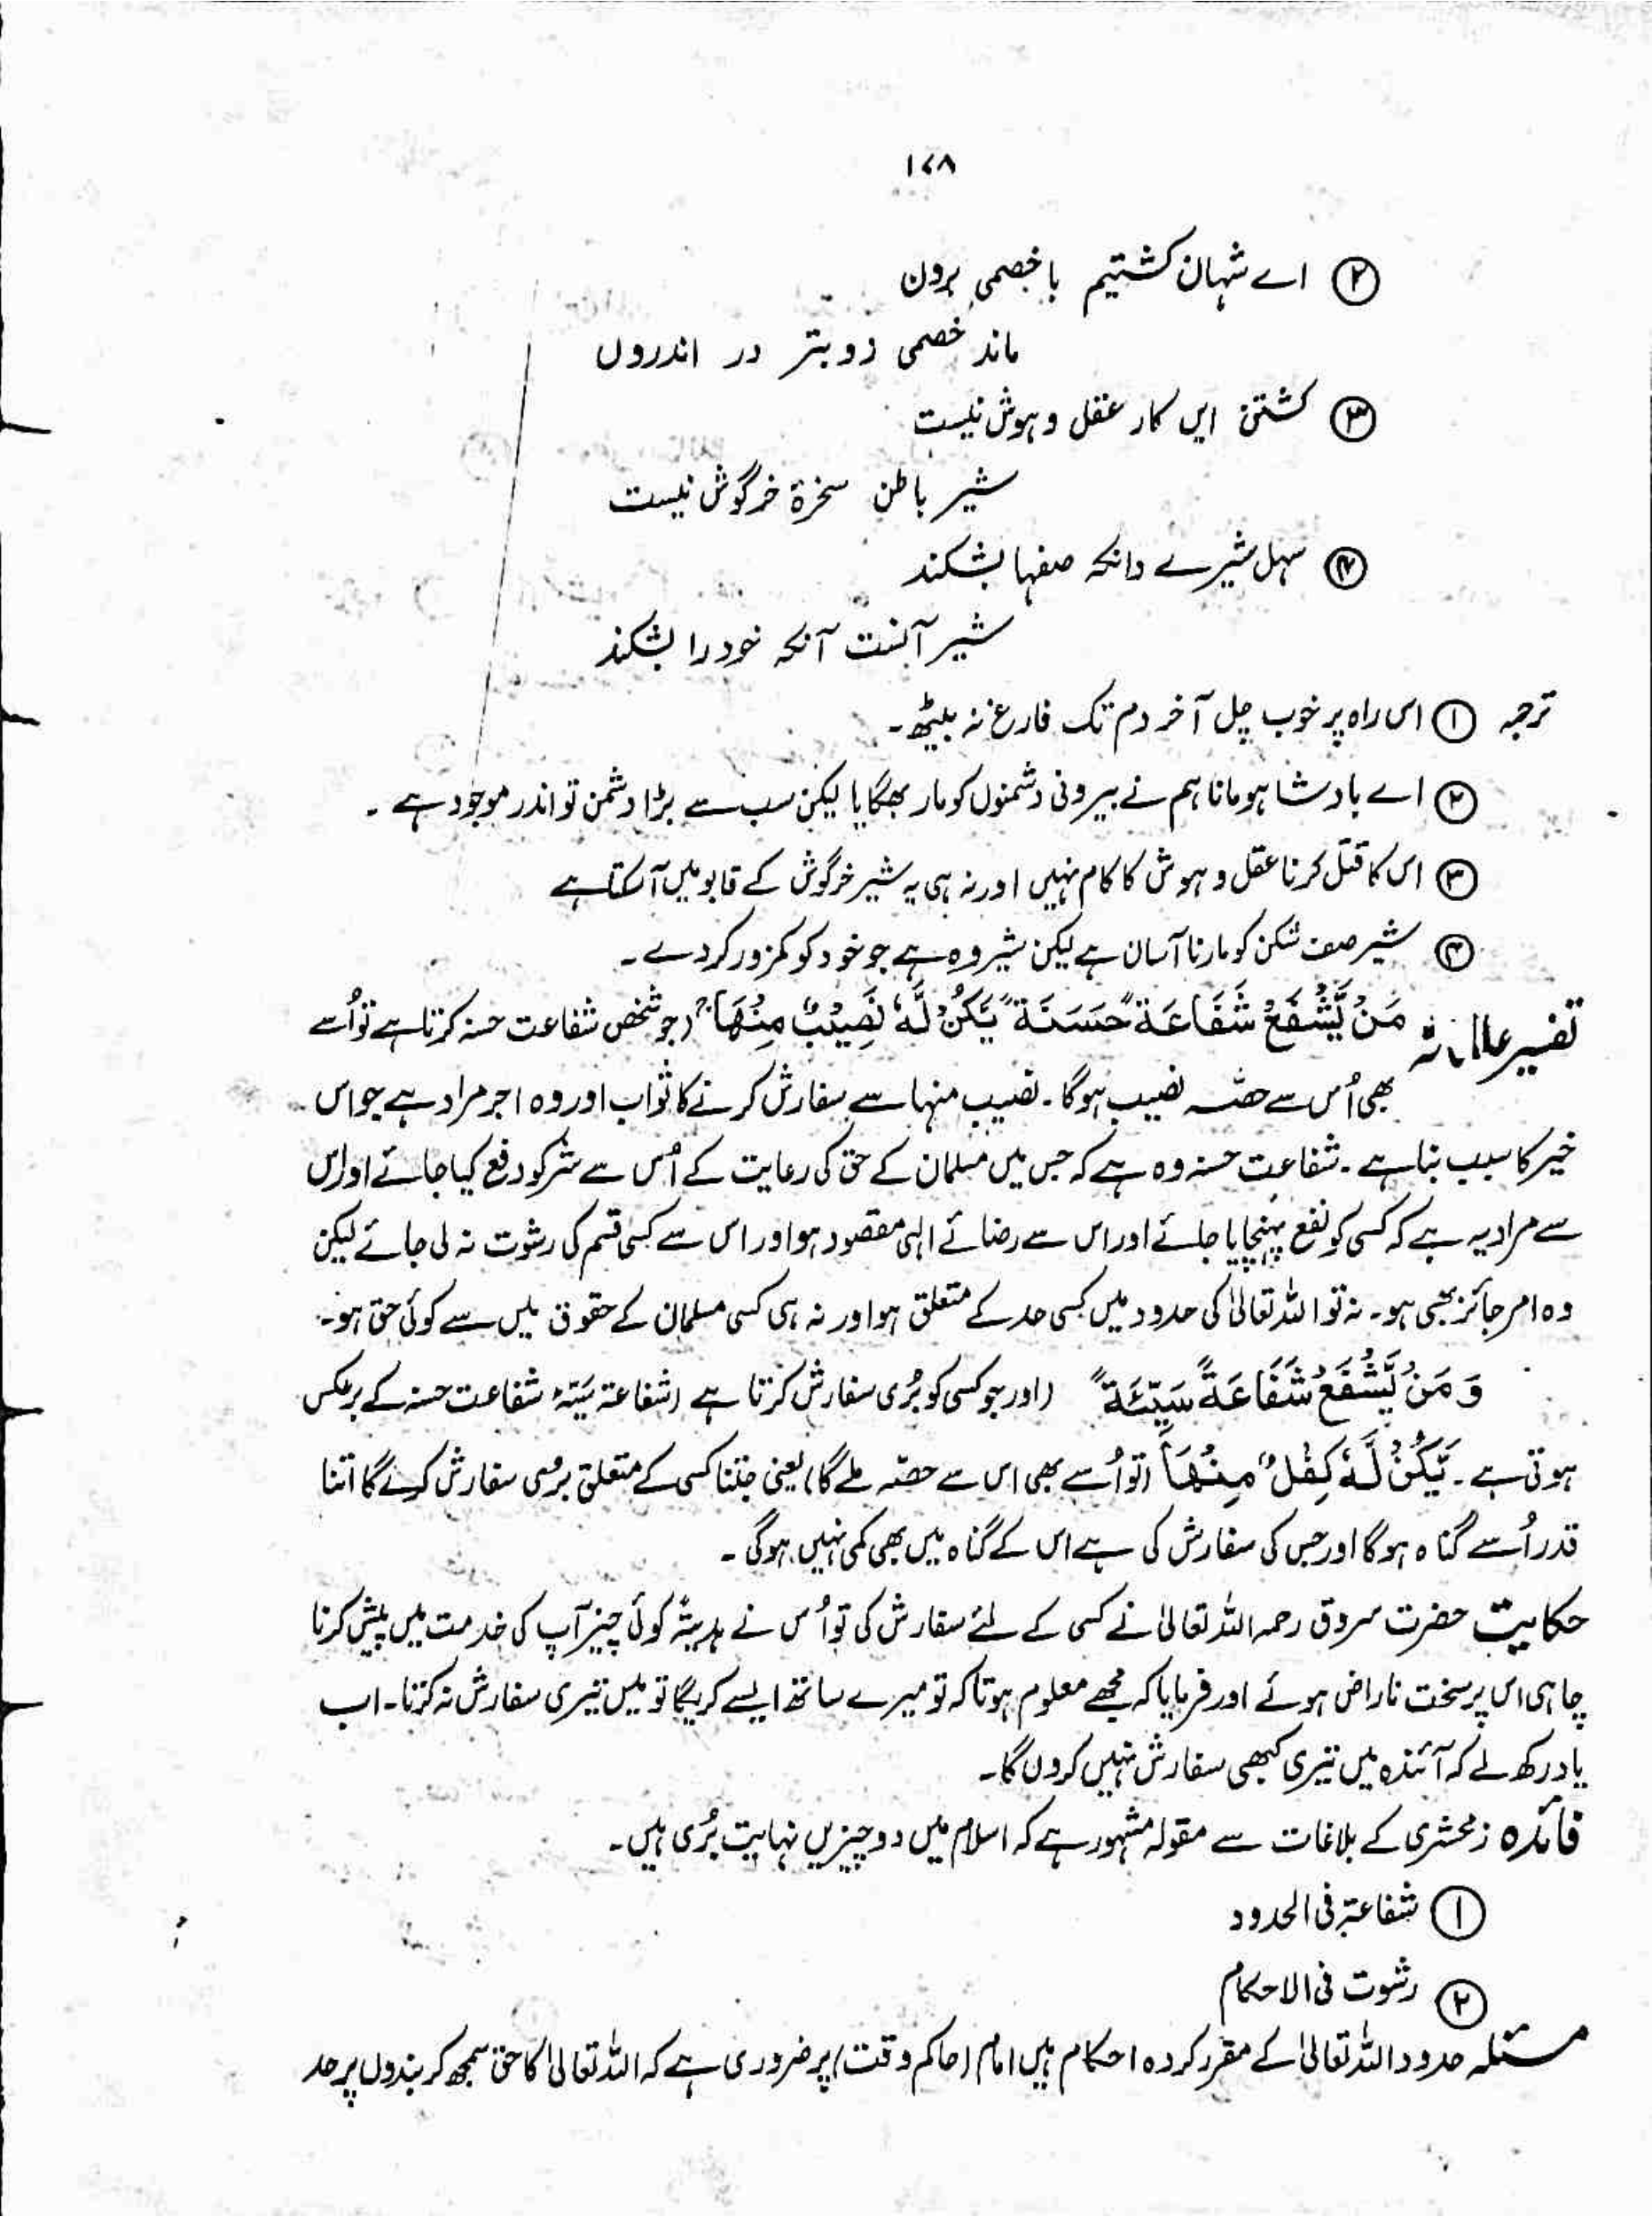 ۱۷۸
② اے شہان کشتیم باخصمی برون
ماند خصمی زو بتر در اندروں
③ کشتن ایں کار عقل و ہوش نیست
شیر باطن سخرۃ خرگوش نیست
④ سہل شیرے دانکہ صفہا بشکند
شیر آنست آنکہ خود را بشکند
ترجمہ ① اس راہ پر خوب چل آخر دم تک فارغ نہ بیٹھ۔
② اے بادشاہو مانا ہم نے بیرونی دشمنوں کو مار بھگایا لیکن سب سے بڑا دشمن تو اندر موجود ہے ۔
③ اس کا قتل کرنا عقل و ہوش کا کام نہیں اور نہ ہی یہ شیر خرگوش کے قابو میں آ سکتا ہے
④ شیر صف شکن کو مارنا آسان ہے لیکن شیر وہ ہے جو خود کو کمزور کر دے ۔
تفسیر عالمانہ مَنْ یَّشْفَعْ شَفَاعَۃً حَسَنَۃً یَّکُنْ لَّہٗ نَصِیْبٌ مِّنْہَا ج (جو شخص شفاعت حسنہ کرتا ہے تو اُسے
بھی اُس سے حصّہ نصیب ہوگا ۔ نصیب منہا سے سفارش کرنے کا ثواب اور وہ اجر مراد ہے جو اس
خیر کا سبب بنا ہے ۔ شفاعت حسنہ وہ ہے کہ جس میں مسلمان کے حق کی رعایت کے اُس سے شر کو دفع کیا جائے اور اس
سے مراد یہ ہے کہ کسی کو نفع پہنچایا جائے اور اس سے رضائے الٰہی مقصود ہو اور اس سے کسی قسم کی رشوت نہ لی جائے لیکن
وہ امر جائز بھی ہو ۔ نہ تو اللہ تعالیٰ کی حدود میں کسی حد کے متعلق ہو اور نہ ہی کسی مسلمان کے حقوق میں سے کوئی حق ہو۔
وَ مَنْ یَّشْفَعْ شَفَاعَۃً سَیِّئَۃً (اور جو کسی کو بُری سفارش کرتا ہے (شفاعۃ سیّئہ شفاعت حسنہ کے برعکس
ہوتی ہے ۔ یَّکُنْ لَّہٗ کِفْلٌ مِّنْہَا (تو اُسے بھی اس سے حصّہ ملے گا) یعنی جتنا کسی کے متعلق بری سفارش کرے گا اتنا
قدر اُسے گناہ ہوگا اور جس کی سفارش کی ہے اس کے گناہ میں بھی کمی نہیں ہوگی ۔
حکایت حضرت مسروق رحمہ اللہ تعالیٰ نے کسی کے لئے سفارش کی تو اُس نے ہدیۃً کوئی چیز آپ کی خدمت میں پیش کرنا
چاہی اس پر سخت ناراض ہوئے اور فرمایا کہ مجھے معلوم ہوتا کہ تو میرے ساتھ ایسے کریگا تو میں تیری سفارش نہ کرتا۔ اب
یاد رکھ لے کہ آئندہ میں تیری کبھی سفارش نہیں کروں گا۔
فائدہ زمخشری کے بلاغات سے مقولہ مشہور ہے کہ اسلام میں دو چیزیں نہایت بُری ہیں۔
① شفاعۃ فی الحدود
② رشوت فی الاحکام
مسئلہ حدود اللہ تعالیٰ کے مقرر کردہ احکام ہیں امام (حاکم وقت) پر ضروری ہے کہ اللہ تعالیٰ کا حق سمجھ کر بندوں پر حد